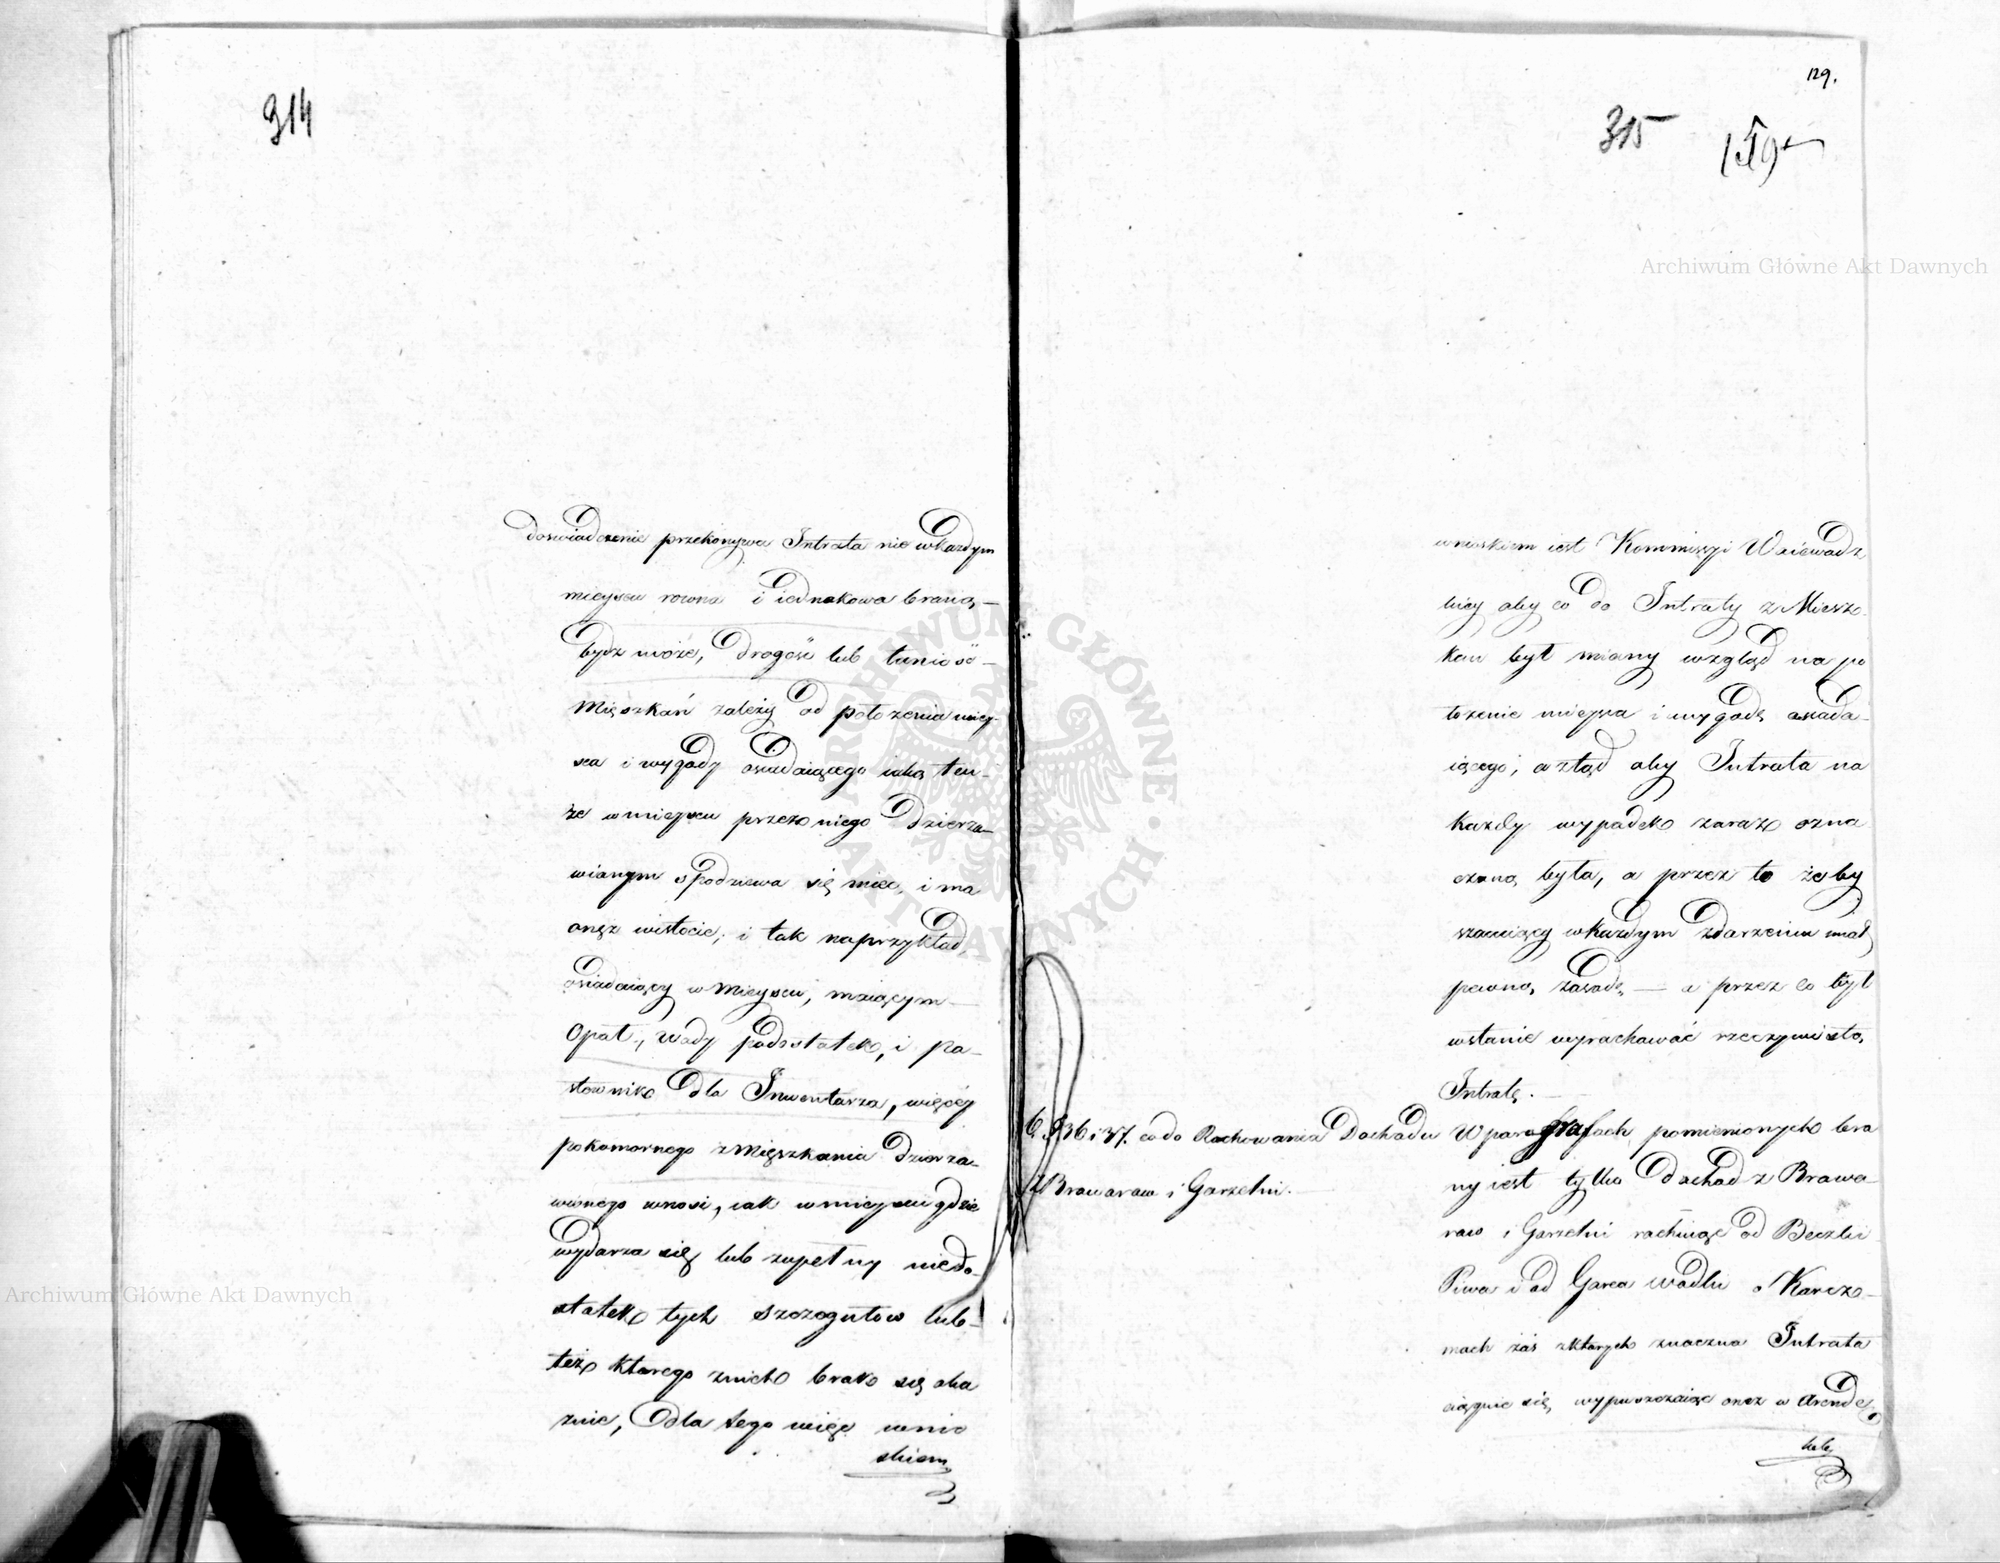 314
doswiadczenie przekonywa Intrata nie wkazdym
mieyscu rowna i iednakowa braną
bydz może, drogość lub taniość
Mięszkań zależy od położenia miey-
sca i wygody osiadaiącego iaką ten-
że w mieyscu przez niego dzierza-
wianym spodziewa się miec, i ma
onęż wistocie; i tak naprzykład,
osiadaiący w Mieyscu, maiącym
Opał, Wody podostatek, i pa-
stwisko dla Inwentarza, więcey
pokomornego z Mięszkania dzierza-
wionego wnosi, iak w mieyscu gdzie
wydarza się lub zupełny niedo-
statek tych szczegułow lub
też ktorego znich brak się oka
zuie, dla tego więc wnio
skiem
129.
315
159
wnioskiem iest Kommissyi Woiewodz
kiey aby co do Intraty z Miesz-
kan był miany wzgląd na po
łożenie mieysca i wygodę osiada-
iącego, a ztąd aby Intrata na
każdy wypadek zaraz ozna
czoną była, a przez to żeby
szacuiący wkażdym zdarzeniu miał
pewną zasadę — a przez co był
wstanie wyrachować rzeczywistą
Intratę. —
6. § 36 i 37. co do Rachowania Dochodu
z Browarow i Gorzelni.
W paragrafach pomienionych bra
ny iest tylko dochod z Browa
row i Gorzelni rachuiąc od Beczki
Piwa i od Garca wodki o Karcz-
mach zaś z ktorych znaczna Intrata
ciągnie się, wypuszczaiąc onez w Arendę